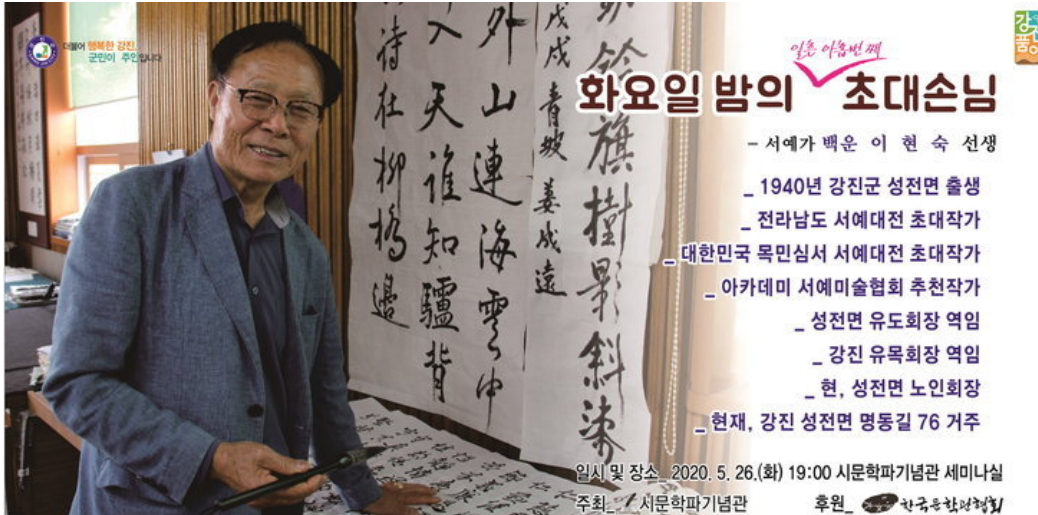 더불어 행복한 강진,
군민이 주인입니다
일흔 아홉번째
화요일 밤의 초대손님
- 서예가 백운 이 현 숙 선생
_ 1940년 강진군 성전면 출생
_ 전라남도 서예대전 초대작가
_ 대한민국 목민심서 서예대전 초대작가
_ 아카데미 서예미술협회 추천작가
_ 성전면 유도회장 역임
_ 강진 유목회장 역임
_ 현, 성전면 노인회장
_ 현재, 강진 성전면 명동길 76 거주
일시 및 장소_ 2020. 5. 26.(화) 19:00 시문학파기념관 세미나실
주최_ 시문학파기념관 후원_ 한국문학관협회
鈴旗樹影斜
戊戌 青坡 姜成遠
外山連海雲中
入天誰知驢背
詩在柳橋邊